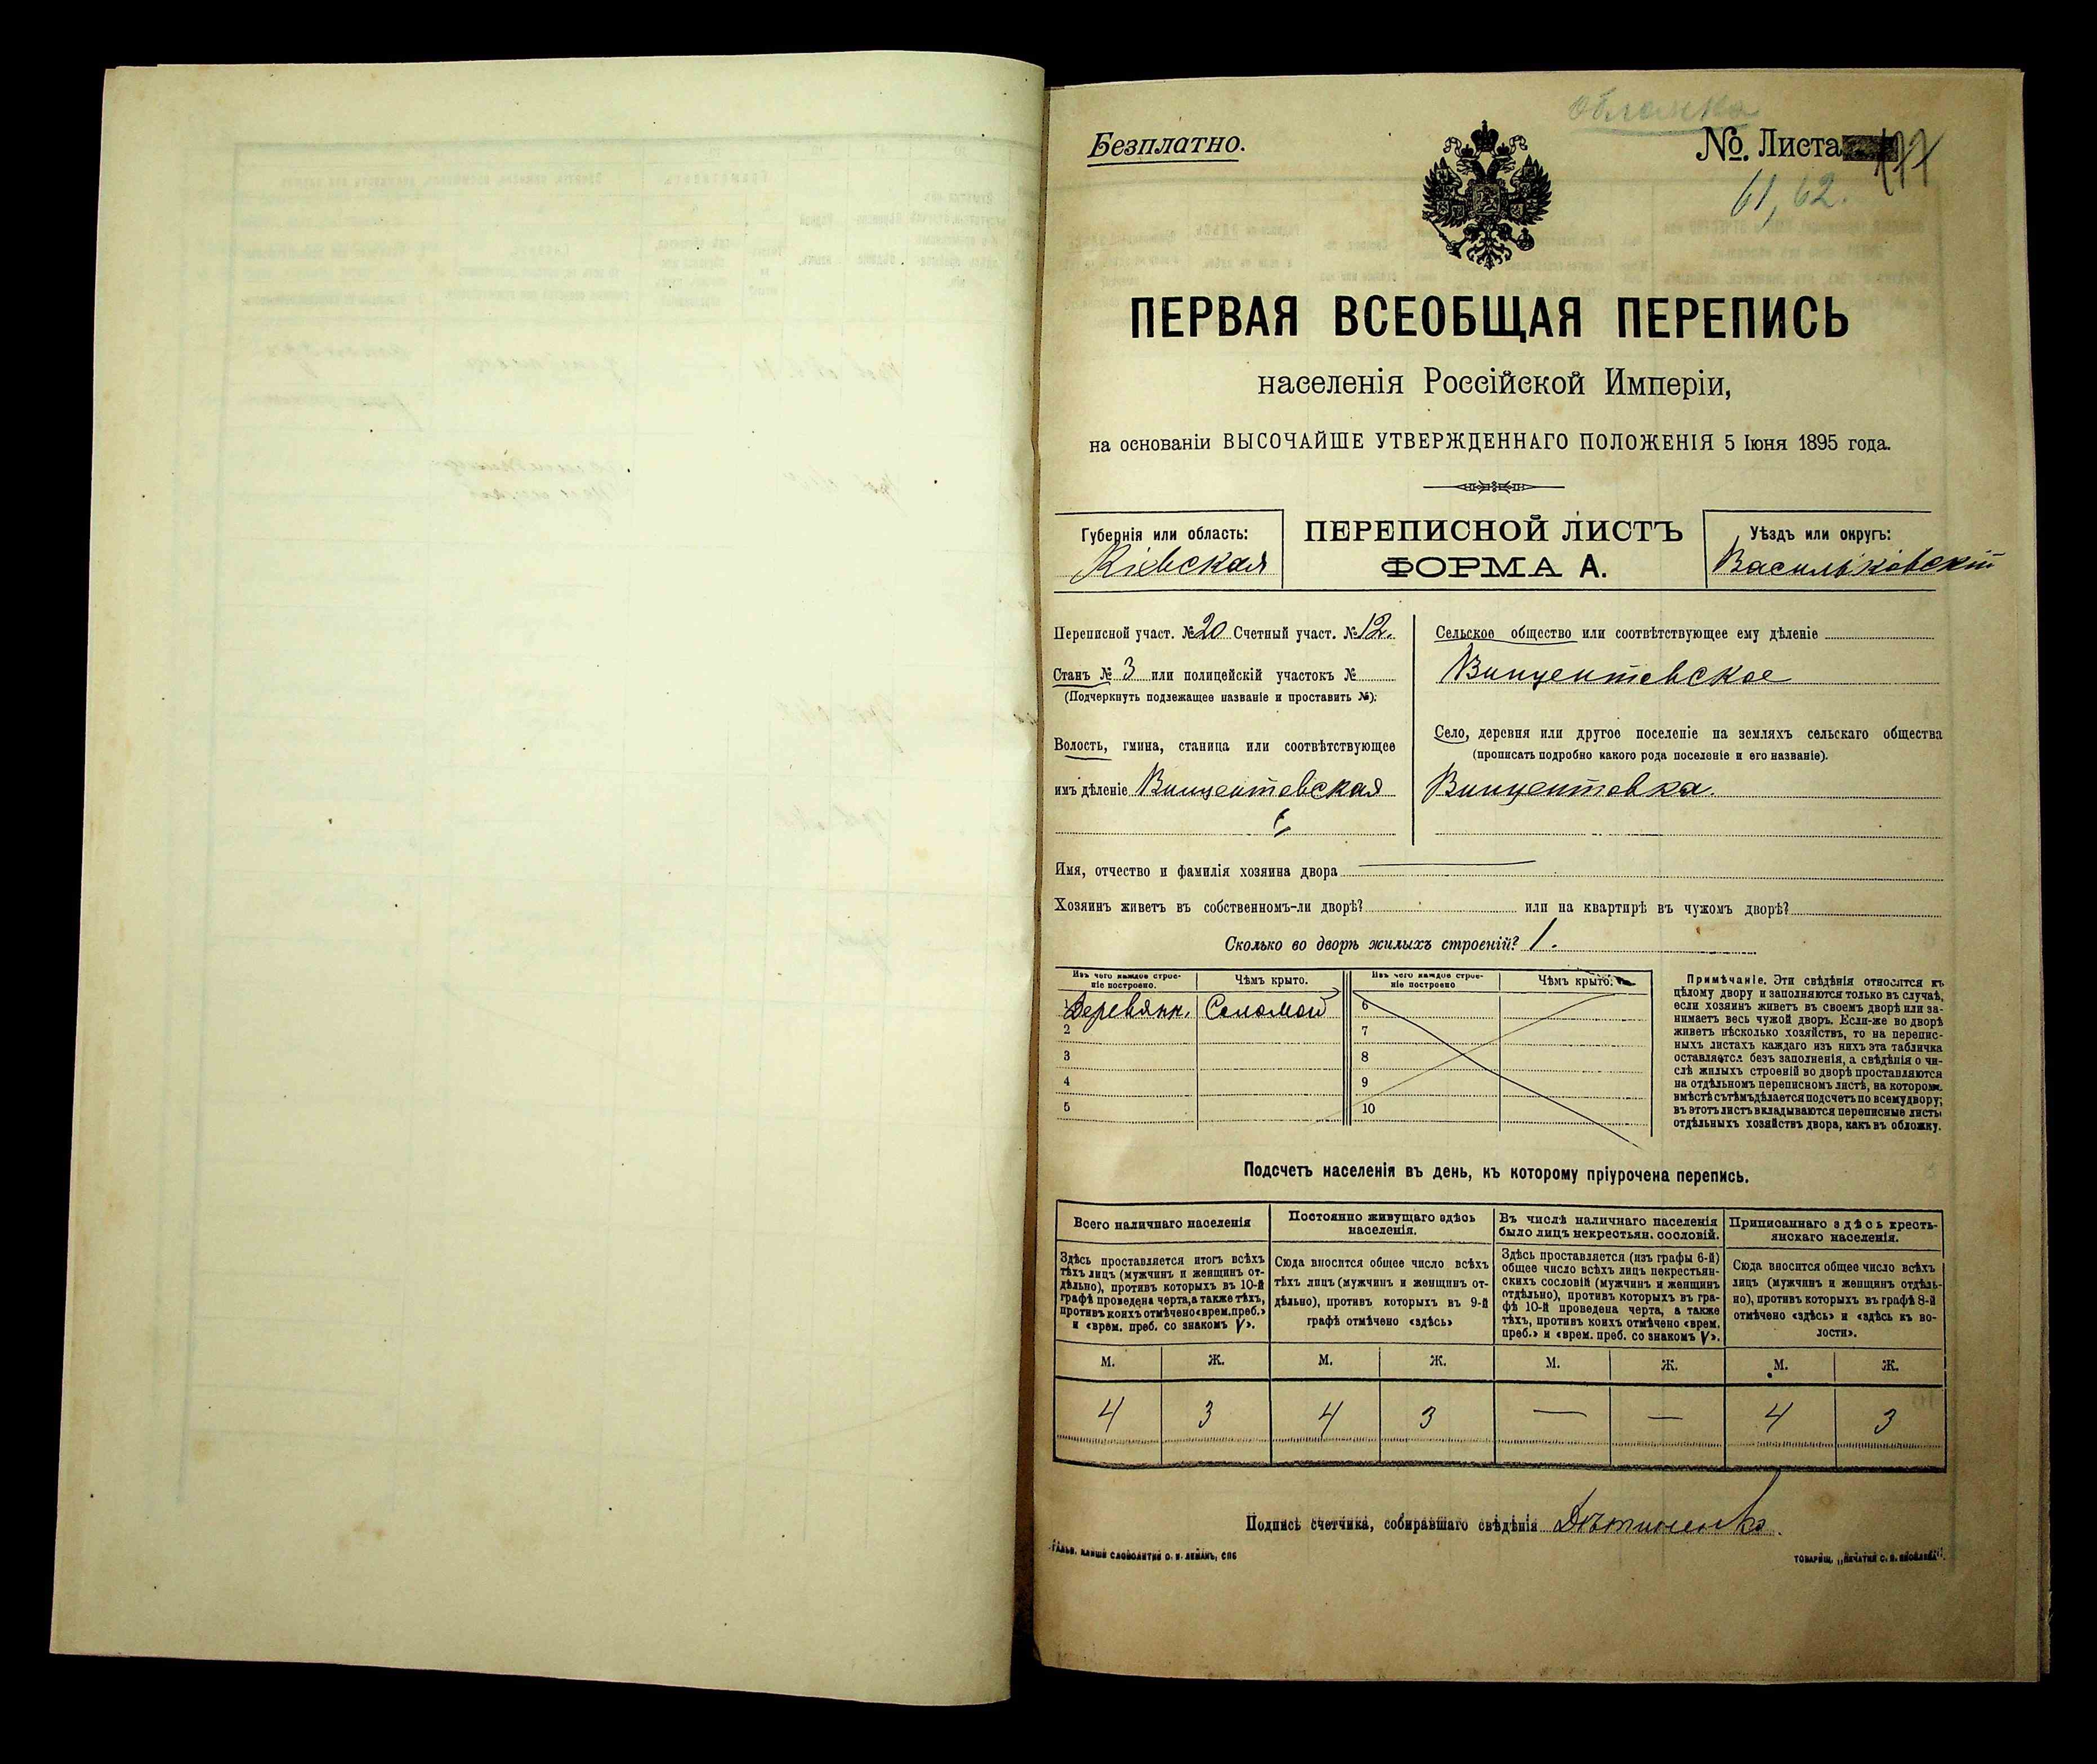 Обложка
Безплатно.
№. Листа
61, 62.
ПЕРВАЯ ВСЕОБЩАЯ ПЕРЕПИСЬ
населенія Россійской Имперіи,
на основаніи ВЫСОЧАЙШЕ УТВЕРЖДЕННАГО ПОЛОЖЕНІЯ 5 Іюня 1895 года.
Губернія или область:
Кіевская
ПЕРЕПИСНОЙ ЛИСТЪ
ФОРМА А.
Уѣздъ или округъ:
Васильковскій
Переписной участ. № 20 Счетный участ. № 12.
Станъ № 3 или полицейскій участокъ №
(Подчеркнуть подлежащее названіе и проставить №):
Волость, гмина, станица или соотвѣтствующее
имъ дѣленіе Винцентовская
Сельское общество или соотвѣтствующее ему дѣленіе
Винцентовское
Село, деревня или другое поселеніе на земляхъ сельскаго общества
(прописать подробно какого рода поселеніе и его названіе).
Винцентовка.
Имя, отчество и фамилія хозяина двора
Хозяинъ живетъ въ собственномъ-ли дворѣ? или на квартирѣ въ чужомъ дворѣ?
Сколько во дворѣ жилыхъ строеній? 1.
Изъ чего каждое строе-
ніе построено.
Чѣмъ крыто.
Изъ чего каждое строе-
ніе построено
Чѣмъ крыто.
1 Деревянн. Соломой 6
2 7
3 8
4 9
5 10
Примѣчаніе. Эти свѣдѣнія относятся къ
цѣлому двору и заполняются только въ случаѣ,
если хозяинъ живетъ въ своемъ дворѣ или за-
нимаетъ весь чужой дворъ. Если-же во дворѣ
живетъ нѣсколько хозяйствъ, то на перепис-
ныхъ листахъ каждаго изъ нихъ эта табличка
оставляется безъ заполненія, а свѣдѣнія о чи-
слѣ жилыхъ строеній во дворѣ проставляются
на отдѣльномъ переписномъ листѣ, на которомъ
вмѣстѣ съ тѣмъ дѣлается подсчетъ по всему двору;
въ этотъ листъ вкладываются переписные листы
отдѣльныхъ хозяйствъ двора, какъ въ обложку.
Подсчетъ населенія въ день, къ которому пріурочена перепись.
Всего наличнаго населенія
Здѣсь проставляется итогъ всѣхъ
тѣхъ лицъ (мужчинъ и женщинъ от-
дѣльно), противъ которыхъ въ 10-й
графѣ проведена черта, а также тѣхъ,
противъ коихъ отмѣчено «врем. преб.»
и «врем. преб. со знакомъ V».
Постоянно живущаго здѣсь
населенія.
Сюда вносится общее число всѣхъ
тѣхъ лицъ (мужчинъ и женщинъ от-
дѣльно), противъ которыхъ въ 9-й
графѣ отмѣчено «здѣсь»
Въ числѣ наличнаго населенія
было лицъ некрестьян. сословій.
Здѣсь проставляется (изъ графы 6-й)
общее число всѣхъ лицъ некрестьян-
скихъ сословій (мужчинъ и женщинъ
отдѣльно), противъ которыхъ въ гра-
фѣ 10-й проведена черта, а также
тѣхъ, противъ коихъ отмѣчено «врем.
преб.» и «врем. преб. со знакомъ V».
Приписаннаго здѣсь кресть-
янскаго населенія.
Сюда вносится общее число всѣхъ
лицъ (мужчинъ и женщинъ отдѣль-
но), противъ которыхъ въ графѣ 8-й
отмѣчено «здѣсь» и «здѣсь къ во-
лости».
М. Ж. М. Ж. М. Ж. М. Ж.
4 3 4 3 — — 4 3
Подпись счетчика, собиравшаго свѣдѣнія
ГАЛЬВ. КЛИШЕ СЛОВОЛИТНИ О. И. ЛЕМАНЪ, СПБ
ТОВАРИЩ. „ПЕЧАТНЯ С. П. ЯКОВЛЕВА“.